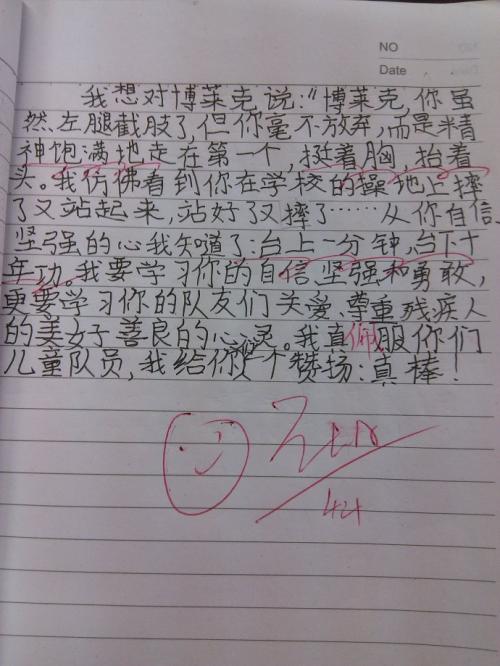 NO
Date
我想对博莱克说:"博莱克,你虽
然左腿截肢了,但你毫不放弃,而是精
神饱满地走在第一个,挺着胸,抬着
头。我仿佛看到你在学校的操地上摔
了又站起来,站好了又摔了……从你自信、
坚强的心我知道了:台上一分钟,台下十
年功。我要学习你的自信、坚强和勇敢,
更要学习你的队友们关爱、尊重残疾人
的美好善良的心灵。我真佩服你们
儿童队员,我给你们一个赞扬:真棒!